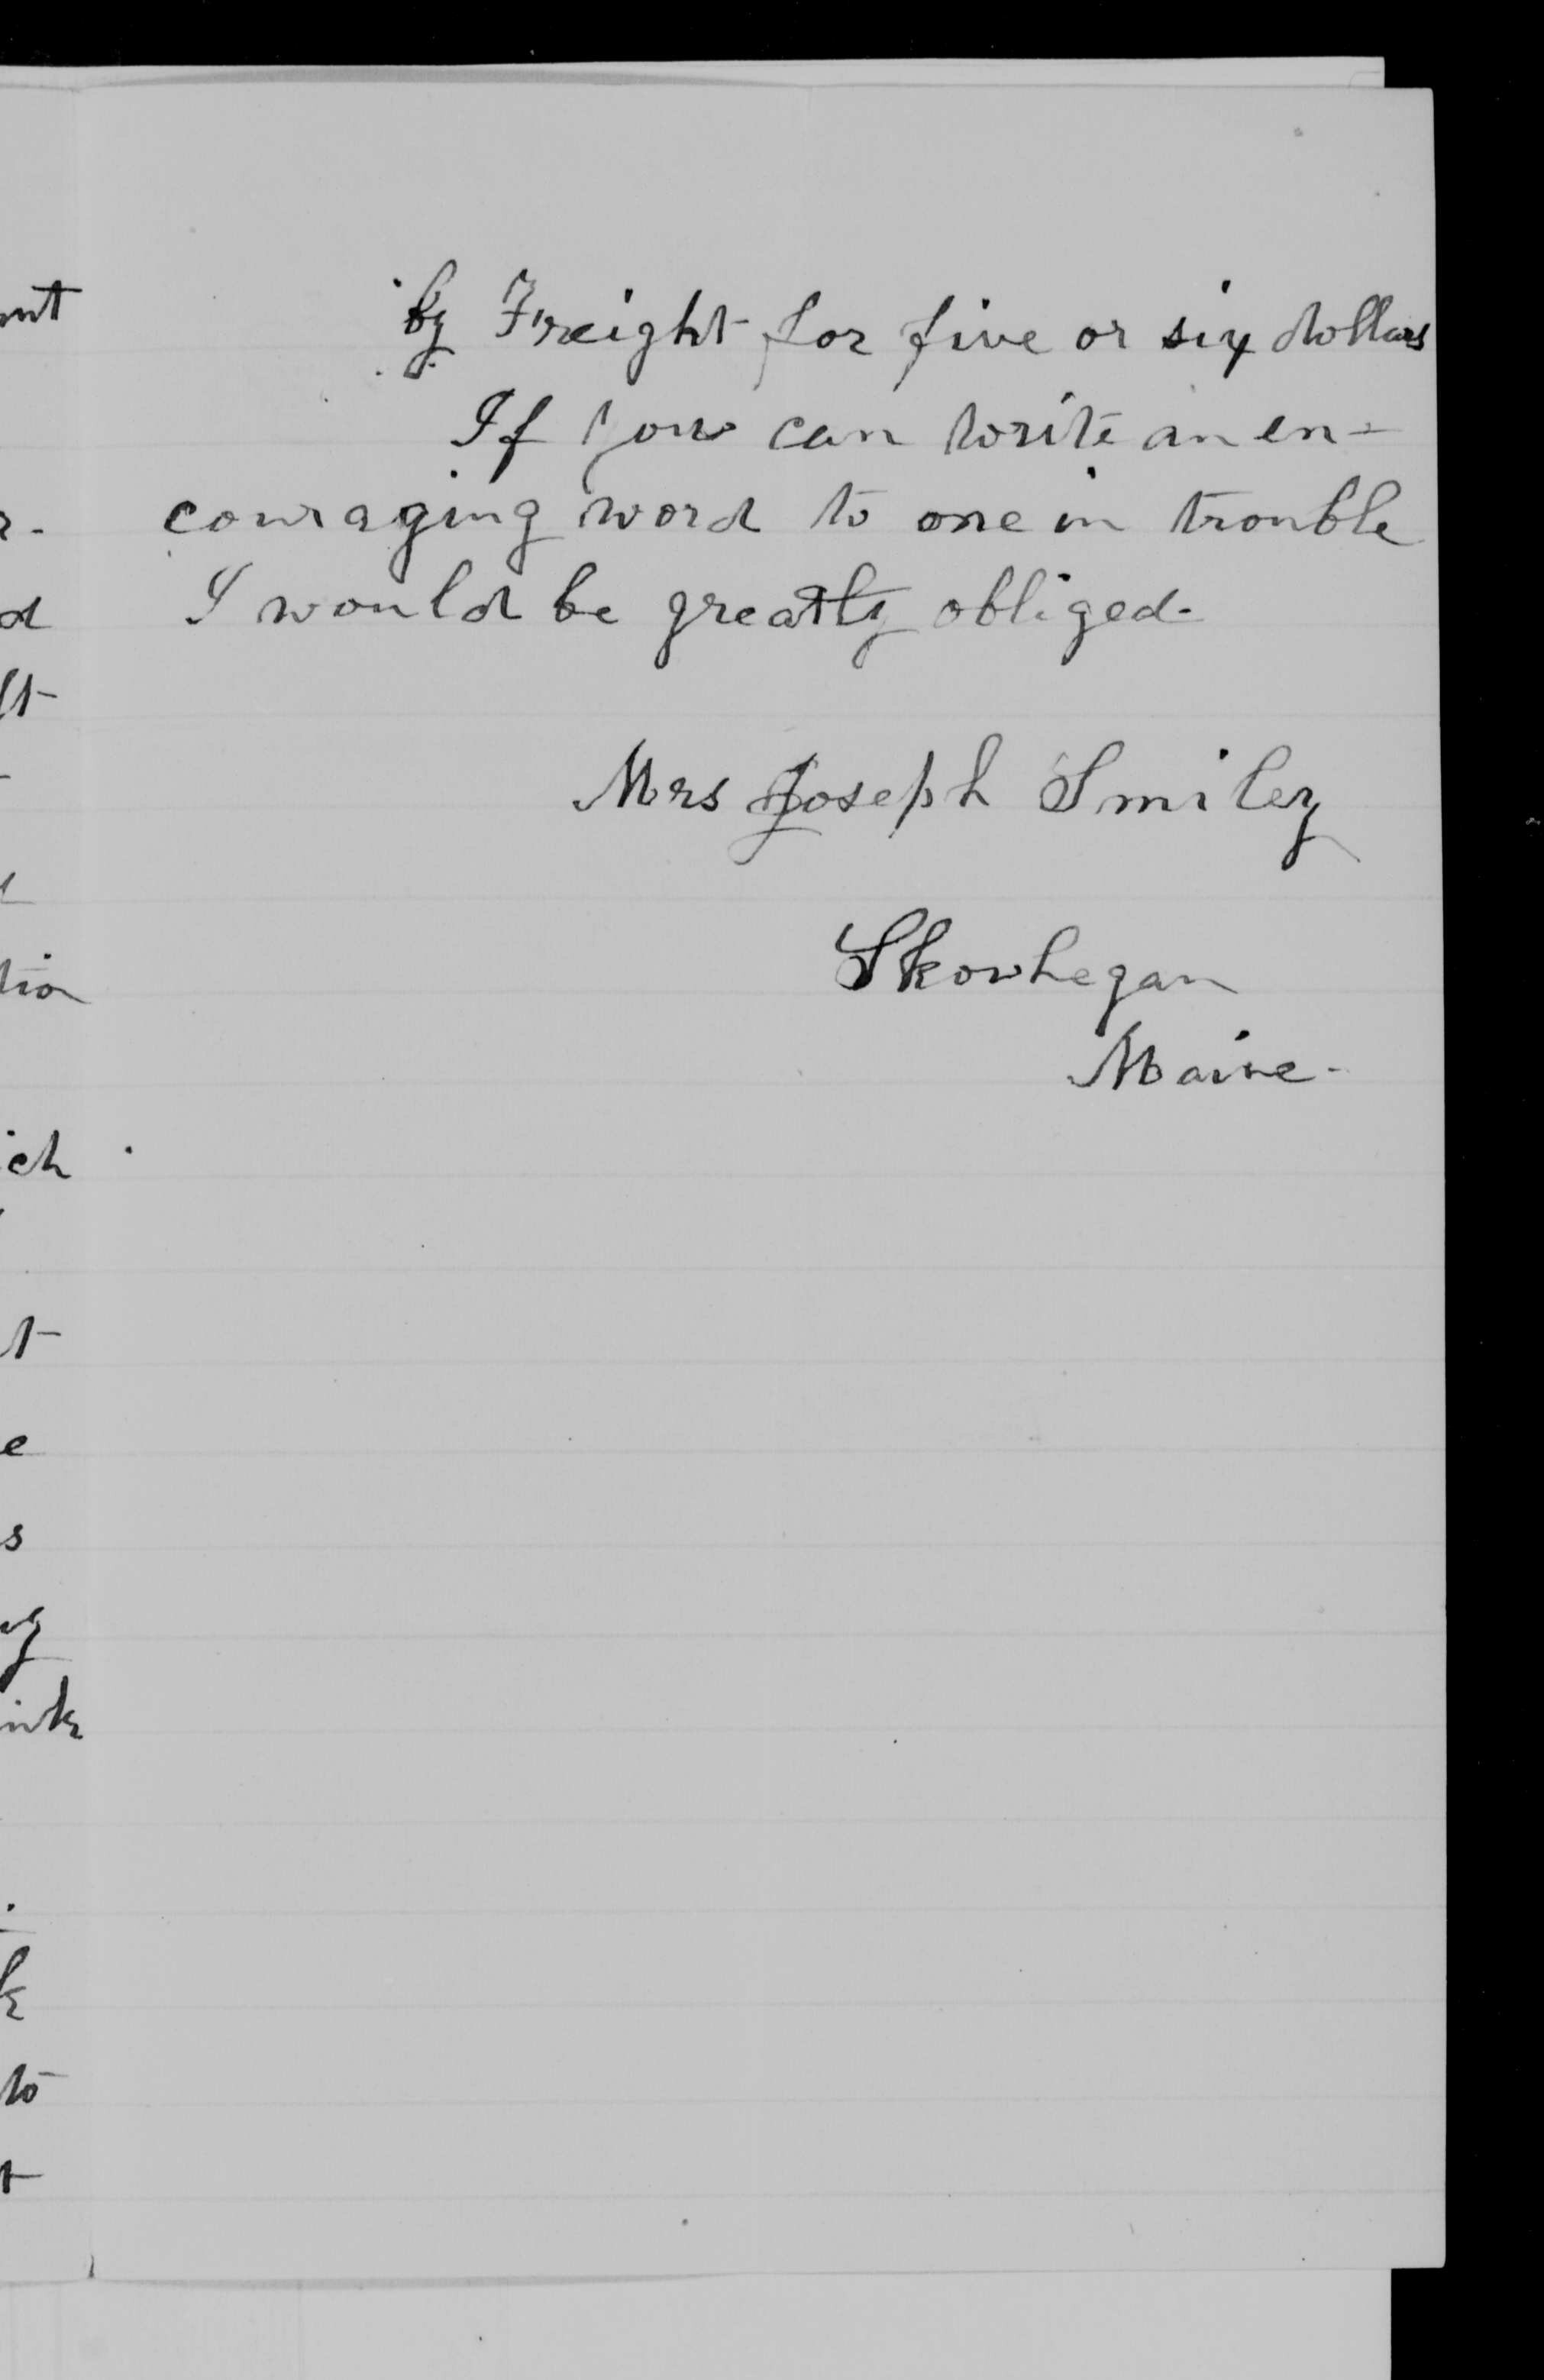 by Freight for five or six dollars
If you can write an en-
couraging word to one in trouble
I would be greatly obliged-
Mrs Joseph Smiley
Skowhegan
Maine-